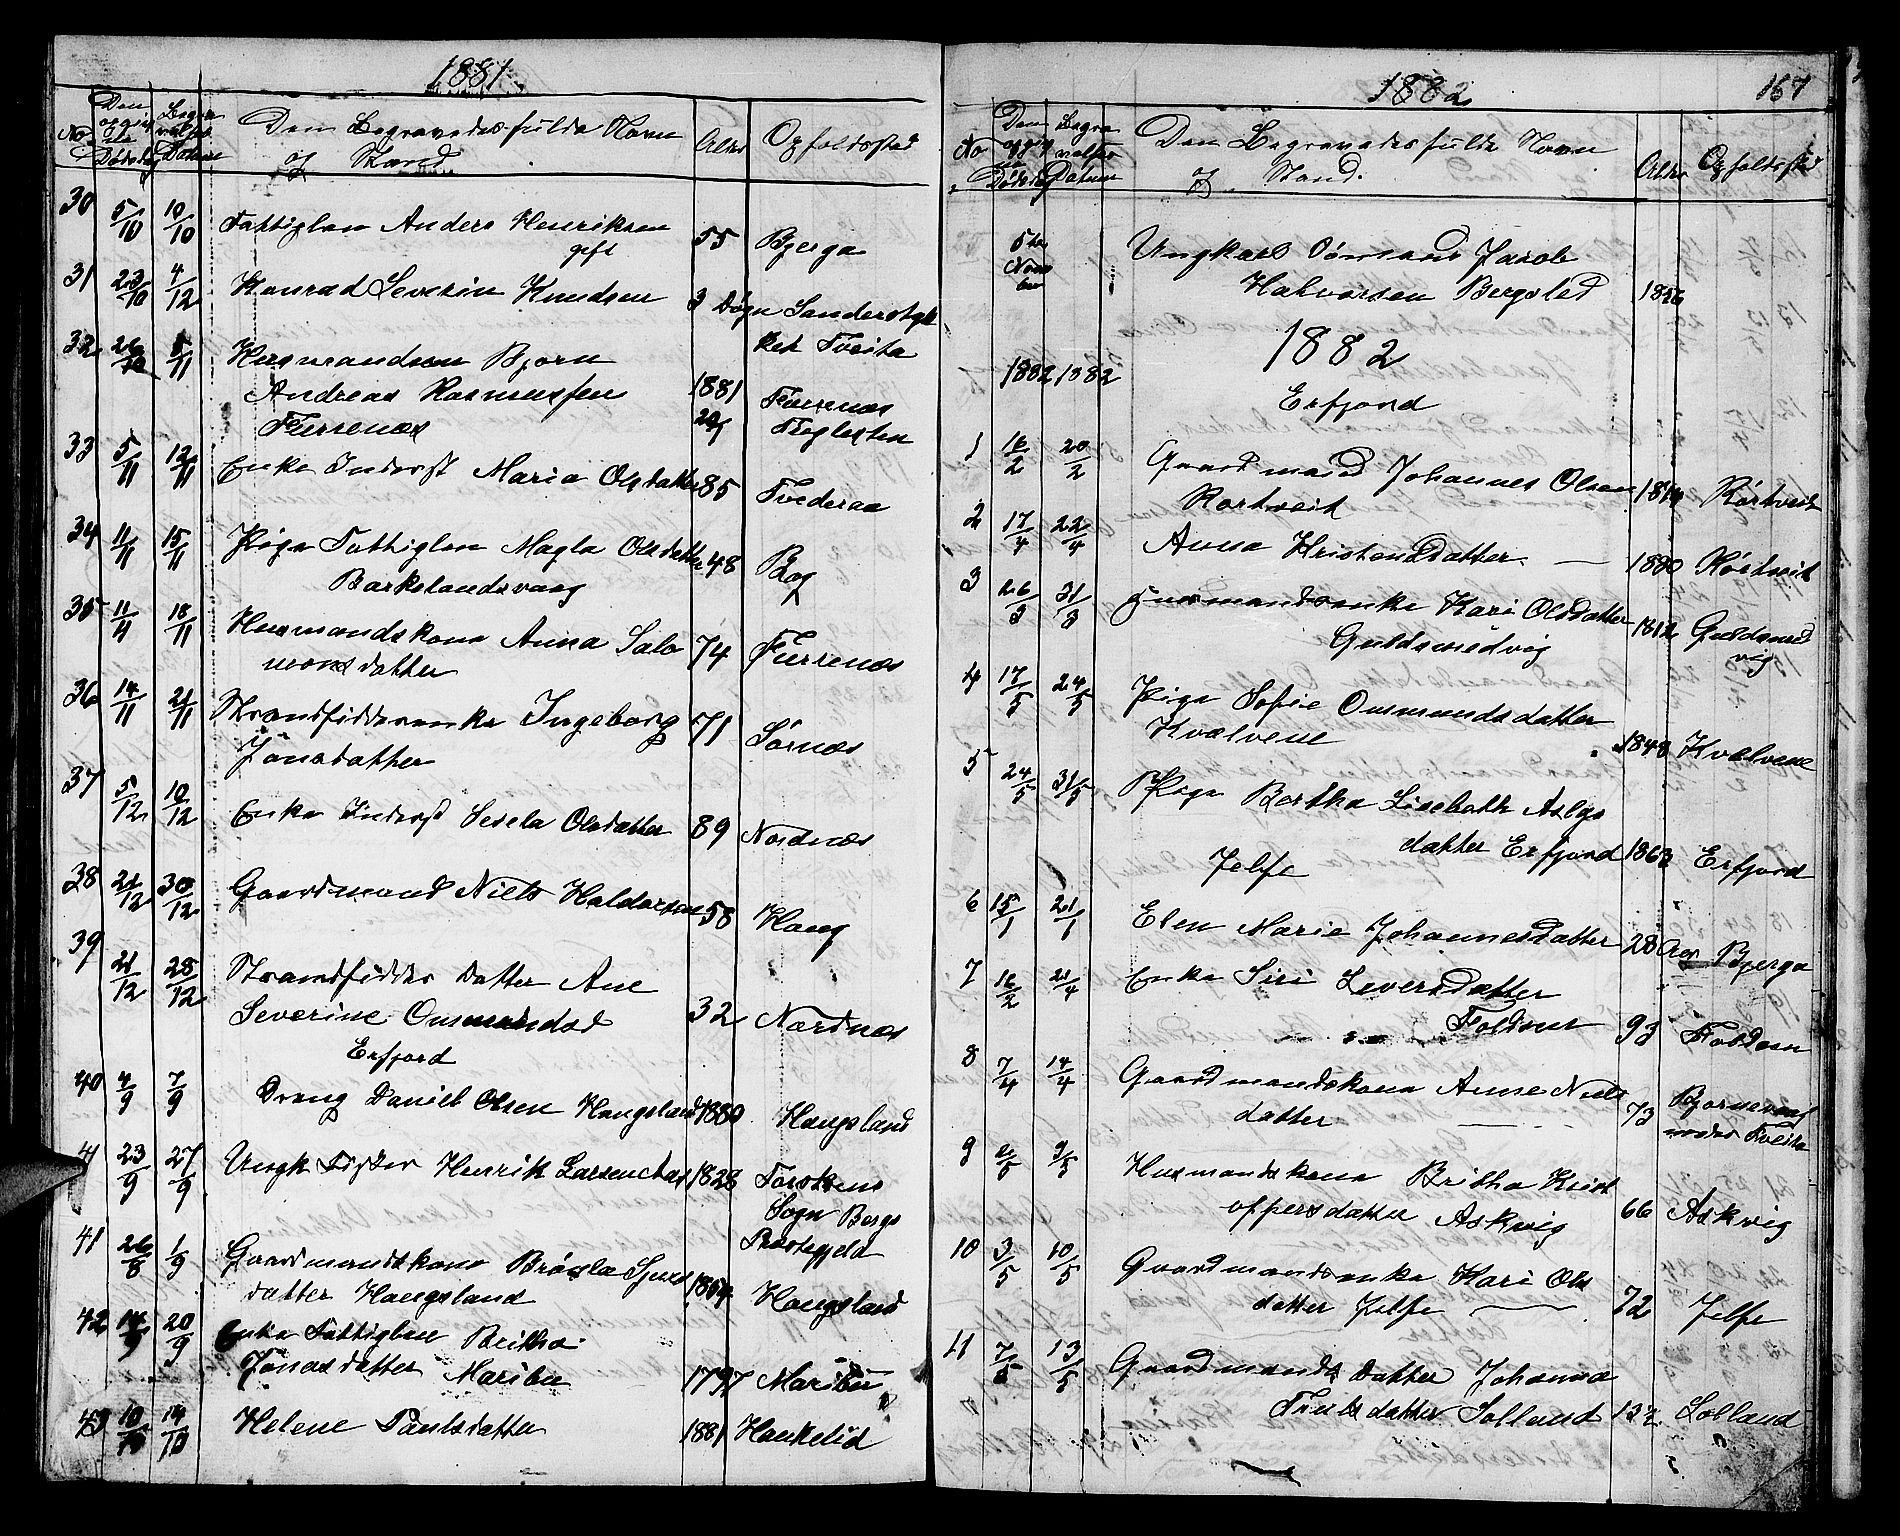 1881
No. Den opgivne Dødsdag Begravelses Datum Den Begravedes fulde Navn og Stand Alder Opholdssted
30 5/10 10/10 Fattiglem Anders Henriksen 55 Bjerga
gift
31 23/10 4/12 Konrad Severin Knudsen 3 Døgn Sanderstyk
ket Tveita
32 26/10 5/11 Husmandssøn Bjørn
Andreas Rasmussen 1881 Furrenæs
Furrenæs
33 5/11 12/11 Enke Inderst Maria Olsdatter 85 Tvederaa
34 11/11 15/11 Pige Fattiglem Magla Olsdatter 48 Bog
Barkelandsvaag
35 11/11 18/11 Husmandskone Anna Salo 74 Furrenæs
monsdatter
36 14/11 21/11 Strandsidderenke Ingeborg 71 Sørnæs
Jonsdatter
37 5/12 10/12 Enke Inderst Sesela Olsdatter 89 Nordnæs
38 21/12 30/12 Gaardmand Niels Haldorsen 58 Haug
39 21/12 28/12 Strandsidder datter Ane
Severine Osmundsd 32 Nordnæs
Erfjord
40 4/9 7/9 Dreng Daniel Olsen Haugsland 1880 Haugsland
41 23/9 27/9 Ungk Fisker Henrik Larsen 1828 Torskens
Sogn Bergs
Præstegjeld
41 26/8 1/9 Gaardmandskone Brønla
datter Haugsland Haugsland
42 14/9 20/9 Enke Fattiglem Britha
Jonasdatter Maribu 1797 Maribu
43 10/10 14/10 Helene Paulsdatter 1881 Haukelid
1882 167
No Den opgivne Dødsdag Begravelses Datum Den Begravedes fulde Navn og Stand. Alder Opholdssted
5te Novem
ber Ungkarl Sømand Jacob
Halvorsen Bergsled 1856
1882
1882 1882
Erfjord
1 16/2 20/2 Gaardmand Johannes Olsen
Rørtveit Rørtveit
2 17/4 22/4 Anna Kristensdatter — 1880 Rørtveit
3 26/3 31/3 Husmandsenke Kari Olsdatter 1812 Guldsmed
Guldsmedvig vig
4 17/5 24/5 Pige Sofie Osmundsdatter
Kvælvene 1848 Kvælvene
5 24/5 31/5 Pige Bertha Lisebeth Aslgs
datter Erfjord 1863 Erfjord
Jelse
6 15/1 21/1 Elen Marie Johannesdatter 28 Aar Bjerga
7 16/2 21/4 Enke Siri Siversdatter
Foldøen 93 Foldøen
8 7/4 14/4 Gaardmandskone Anne Niels
datter — 73 Bjørnevaag
under Tveita
9 2/5 9/5 Husmandskone Britha Krist
offersdatter Askvig 66 Askvig
10 3/5 10/5 Gaardmandsenke Kari Ols
datter Jelse — 72 Jelse
11 7/5 13/5 Gaardmands datter Johanna
Trulsdatter Solland Solland